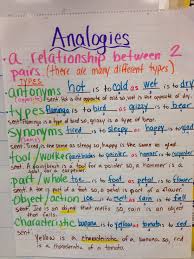 Analogies
a relationship between 2
pairs. (there are many different types)
TYPES
antonyms hot is to cold as wet is to dry
(opposites) sent. Hot is the opposite of cold so, wet is the opposite of dry.
types flamingo is to bird as grizzy is to bear
sent. flamingo is a type of bird so, grizzy is a type of bear.
synonyms tired is to sleepy as happy is to
sent. tired is the same as sleepy so, happy is the same as glad.
tool/worker is to as hammer is to
so, a hammer is a
tool for a
part/whole toe is to foot as petal is to
sent. A toe is part of a foot so, a petal is part of a flower.
object/action ice is to melt as rain is to fall
sent. Ice is an object that melts so, rain is an object
that falls.
Characteristic banana is to yellow as tomato is to red
Yellow is a characteristic of a banana so, red
is a characteristic of a tomato.